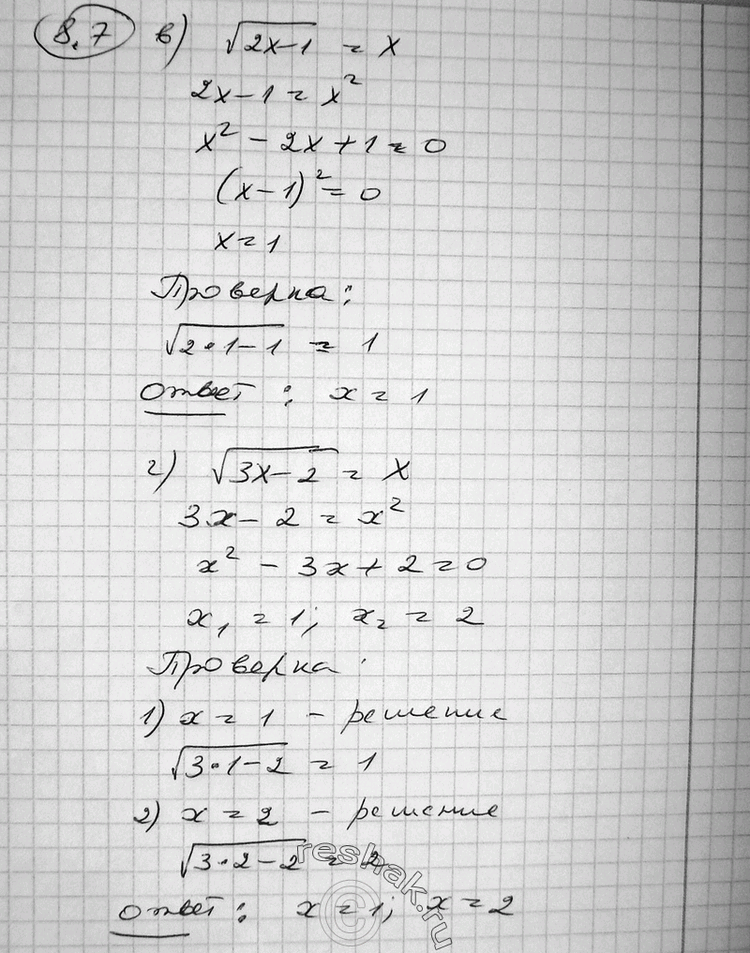 8.7 в) √(2x-1) = x
2x-1 = x²
x² - 2x + 1 = 0
(x-1)² = 0
x = 1
Проверка:
√(2·1-1) = 1
Ответ: x = 1
г) √(3x-2) = x
3x - 2 = x²
x² - 3x + 2 = 0
x₁ = 1; x₂ = 2
Проверка:
1) x = 1 - решение
√(3·1-2) = 1
2) x = 2 - решение
√(3·2-2) = 2
Ответ: x = 1; x = 2
reshak.ru
©